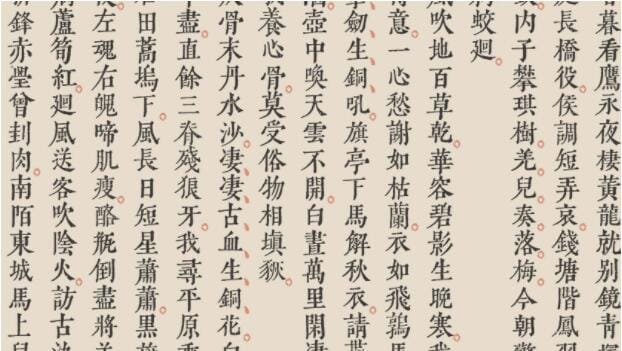 暮看鷹永夜棲黃龍就別鏡青
長橋役侯調短弄哀錢塘階鳳羽
內子攀琪樹羌兒奏落梅今朝
蛟廻
風吹地百草乾華容碧影生晚寒我
得意一心愁謝如枯蘭衣如飛鶉馬
劒生銅吼旗亭下馬解秋衣請
壺中喚天雲不開白晝萬里閒淒
養心骨莫受俗物相塡豗
骨末丹水沙淒淒古血生銅花白
盡直餘三脊殘狼牙我尋平原
田蒿塢下風長日短星蕭蕭黑旗
左魂右魄啼肌瘦酪甁倒盡將羊
蘆筍紅廻風送客吹陰火訪古
鋒赤璺曾刲肉南陌東城馬上兒